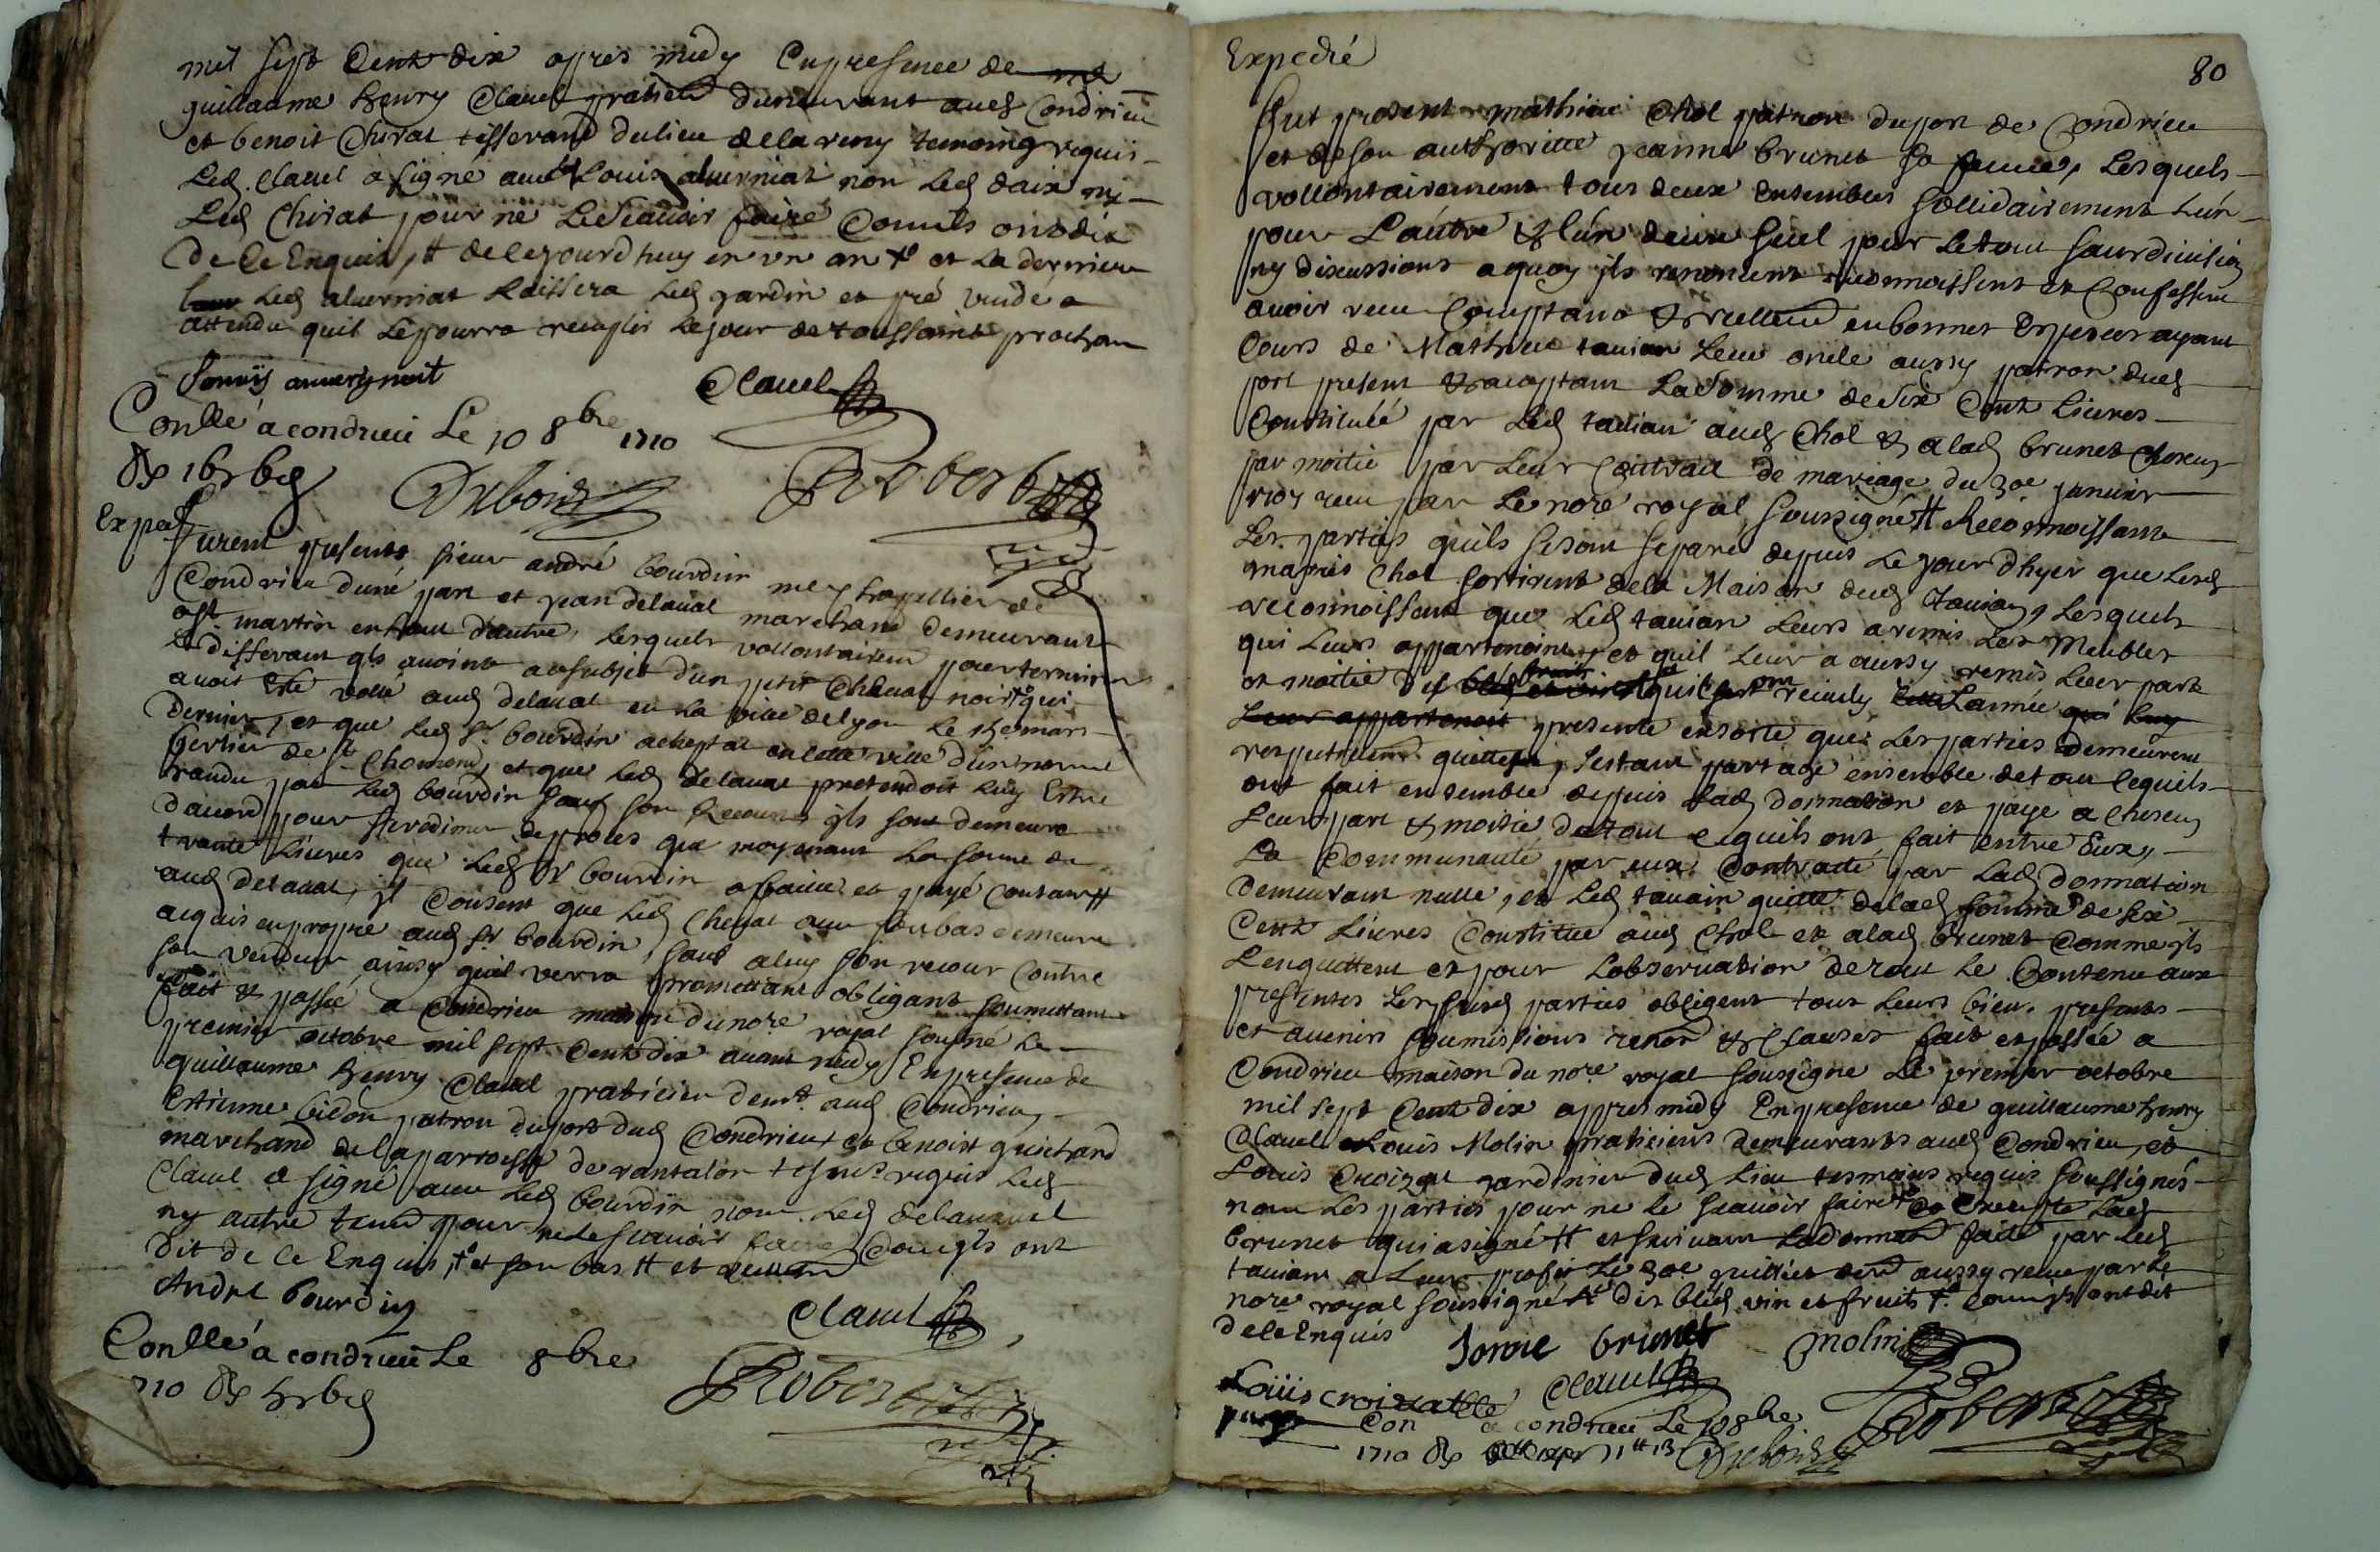 mil sept Cent dix apres midy En presence de
guillaume henry Clavel praticien demeurant aud Condrieu
et benoit Chirat tisserand du lieu de la reny temoing requis
Led. Clavel a signé avec led Louis alverniat non led daix ny
Led Chirat pour ne le scavoir faire Comm'ils ont dit
De Ce Enquis, # de cejourdhuy en un an +o et La derniere
Led alverniat Laissera led jardin et pré vuidé a
attendu quil Le pourra remplir Le jour de toussaint prochain
Louis auvergnat
Clavel
Conllé a condrieu Le 10 8bre 1710
Dubois
Robert
Exped
Furent presents sieur andré bourdin me chapellier de
Condrieu d'une part et jean delaval marchand demeurant
a st martin en haut d'autre, Lesquels vollontairemt pour terminer
Le differant qls avoint au subjet d'un petit Cheval noir +o qui
avoit Esté vollé aud delaval en La ville de lyon Le mars
Dernier, et que Led Sr bourdin achepta en cette ville d'un nommé
de St Chomond, et que led delaval pretendoit luy Estre
randu par Led bourdin sauf son Recours, ils sont demeuré
d'acord pour se redimer de proces que moyenant La somme de
trante Livres que Led Sr bourdin a baillé et payé contant #
aud delaval, jl Consent que Led Cheval avec son bas demeure
acquis en propre aud Sr bourdin, sauf a luy son recour Contre
son vendeur ainsy quil verra promettant obligant soumettant
fait & passé a Condrieu maison du nore royal sousné Le
premier octobre mil sept Cent dix avant midy En presence de
guillaume henry Clavel praticien demt aud Condrieu,
Estienne bidon patron du port dud Condrieu et benoist guichard
marchand de la parroisse de rantalon tesms requis Led
Clavel a signé avec Led bourdin non Led delaval
ny autre temoin pour ne le scavoir faire Comm'ils ont
Dit de Ce Enquis, +o et son bas # et
André bourdin
Clavel
Conllé a condrieu Le 8bre
710
Robert
Expedié
80
Fut present mathieu Chol patron du port de Condrieu
et de son authoritté jeanne brunet sa femme, Lesquels
vollontairement tous deux ensembles sollidairement L'un
pour L'autre & l'un deux seul pour Le tout sans division
ny discussions a quoy ils renoncent reconnoissent et Confessent
avoir receu Comptant & reellemt en bonnes Especes ayant
Cours de Mathieu tavian Leur oncle aussy patron dud
port present & aceptant La Somme de Six Cent Livres
Constituéé par Led tavian aud Chol & a lad brunet chacun
par moitié par Leur Contract de mariage du 30e janvier
1707 receu par Le nore royal soussigné # Reconnoissant
Les parties quils se sont separé depuis Le jour d'hyer que Lesd
mariés Chol sortirent de la Maison dud tavian, Lesquels
reconnoissent que Led tavian Leurs a remis Les Meubles
qui Leurs appartenoint, et quil Leur a aussy remis Leur part
et moitié des fruits quils ont recuely L'année
presente ensorte que Les parties demeurent
respectivemt quittes, s'estant partagé ensemble de tout ce quils
ont fait ensemble depuis Lad donnation et payé a chacun
Leur part & moitié de tout ce quils ont fait entre Eux,
La Communauté par eux Contractée par Lad Donnation
demeurant nulle, et Led tavian quitte de lad somme de six
Cent Livres Constitué aud Chol et a lad brunet Comme ils
L'enquittent et pour L'observation de tout Le Contenu aux
presentes Les susd parties obligent tous Leurs biens presents
et avenirs soumissions renon & Clauses fait et passée a
Condrieu maison du nore royal soussigné Le premier octobre
mil sept Cent dix apres midy En presence de guillaume henry
Clavel & Louis Molin praticiens demeurants aud Condrieu, et
Louis Croizat jardinier dud Lieu tesmoins requis soussignés
non Les parties pour ne le scavoir faire +o Excepté Lad
brunet qui a signé # et suivant La donnation faite par Led
tavian a Leur profit Le 30e juillet aussy receue par Le
nore royal soussigné +o Des bled vin et fruits +o Comm'ils ont dit
De ce Enquis
Janne brunet
Molin
Loüis croizatlle
Clavel
Con a condrieu Le 10 8bre
1710
Dubois
Robert